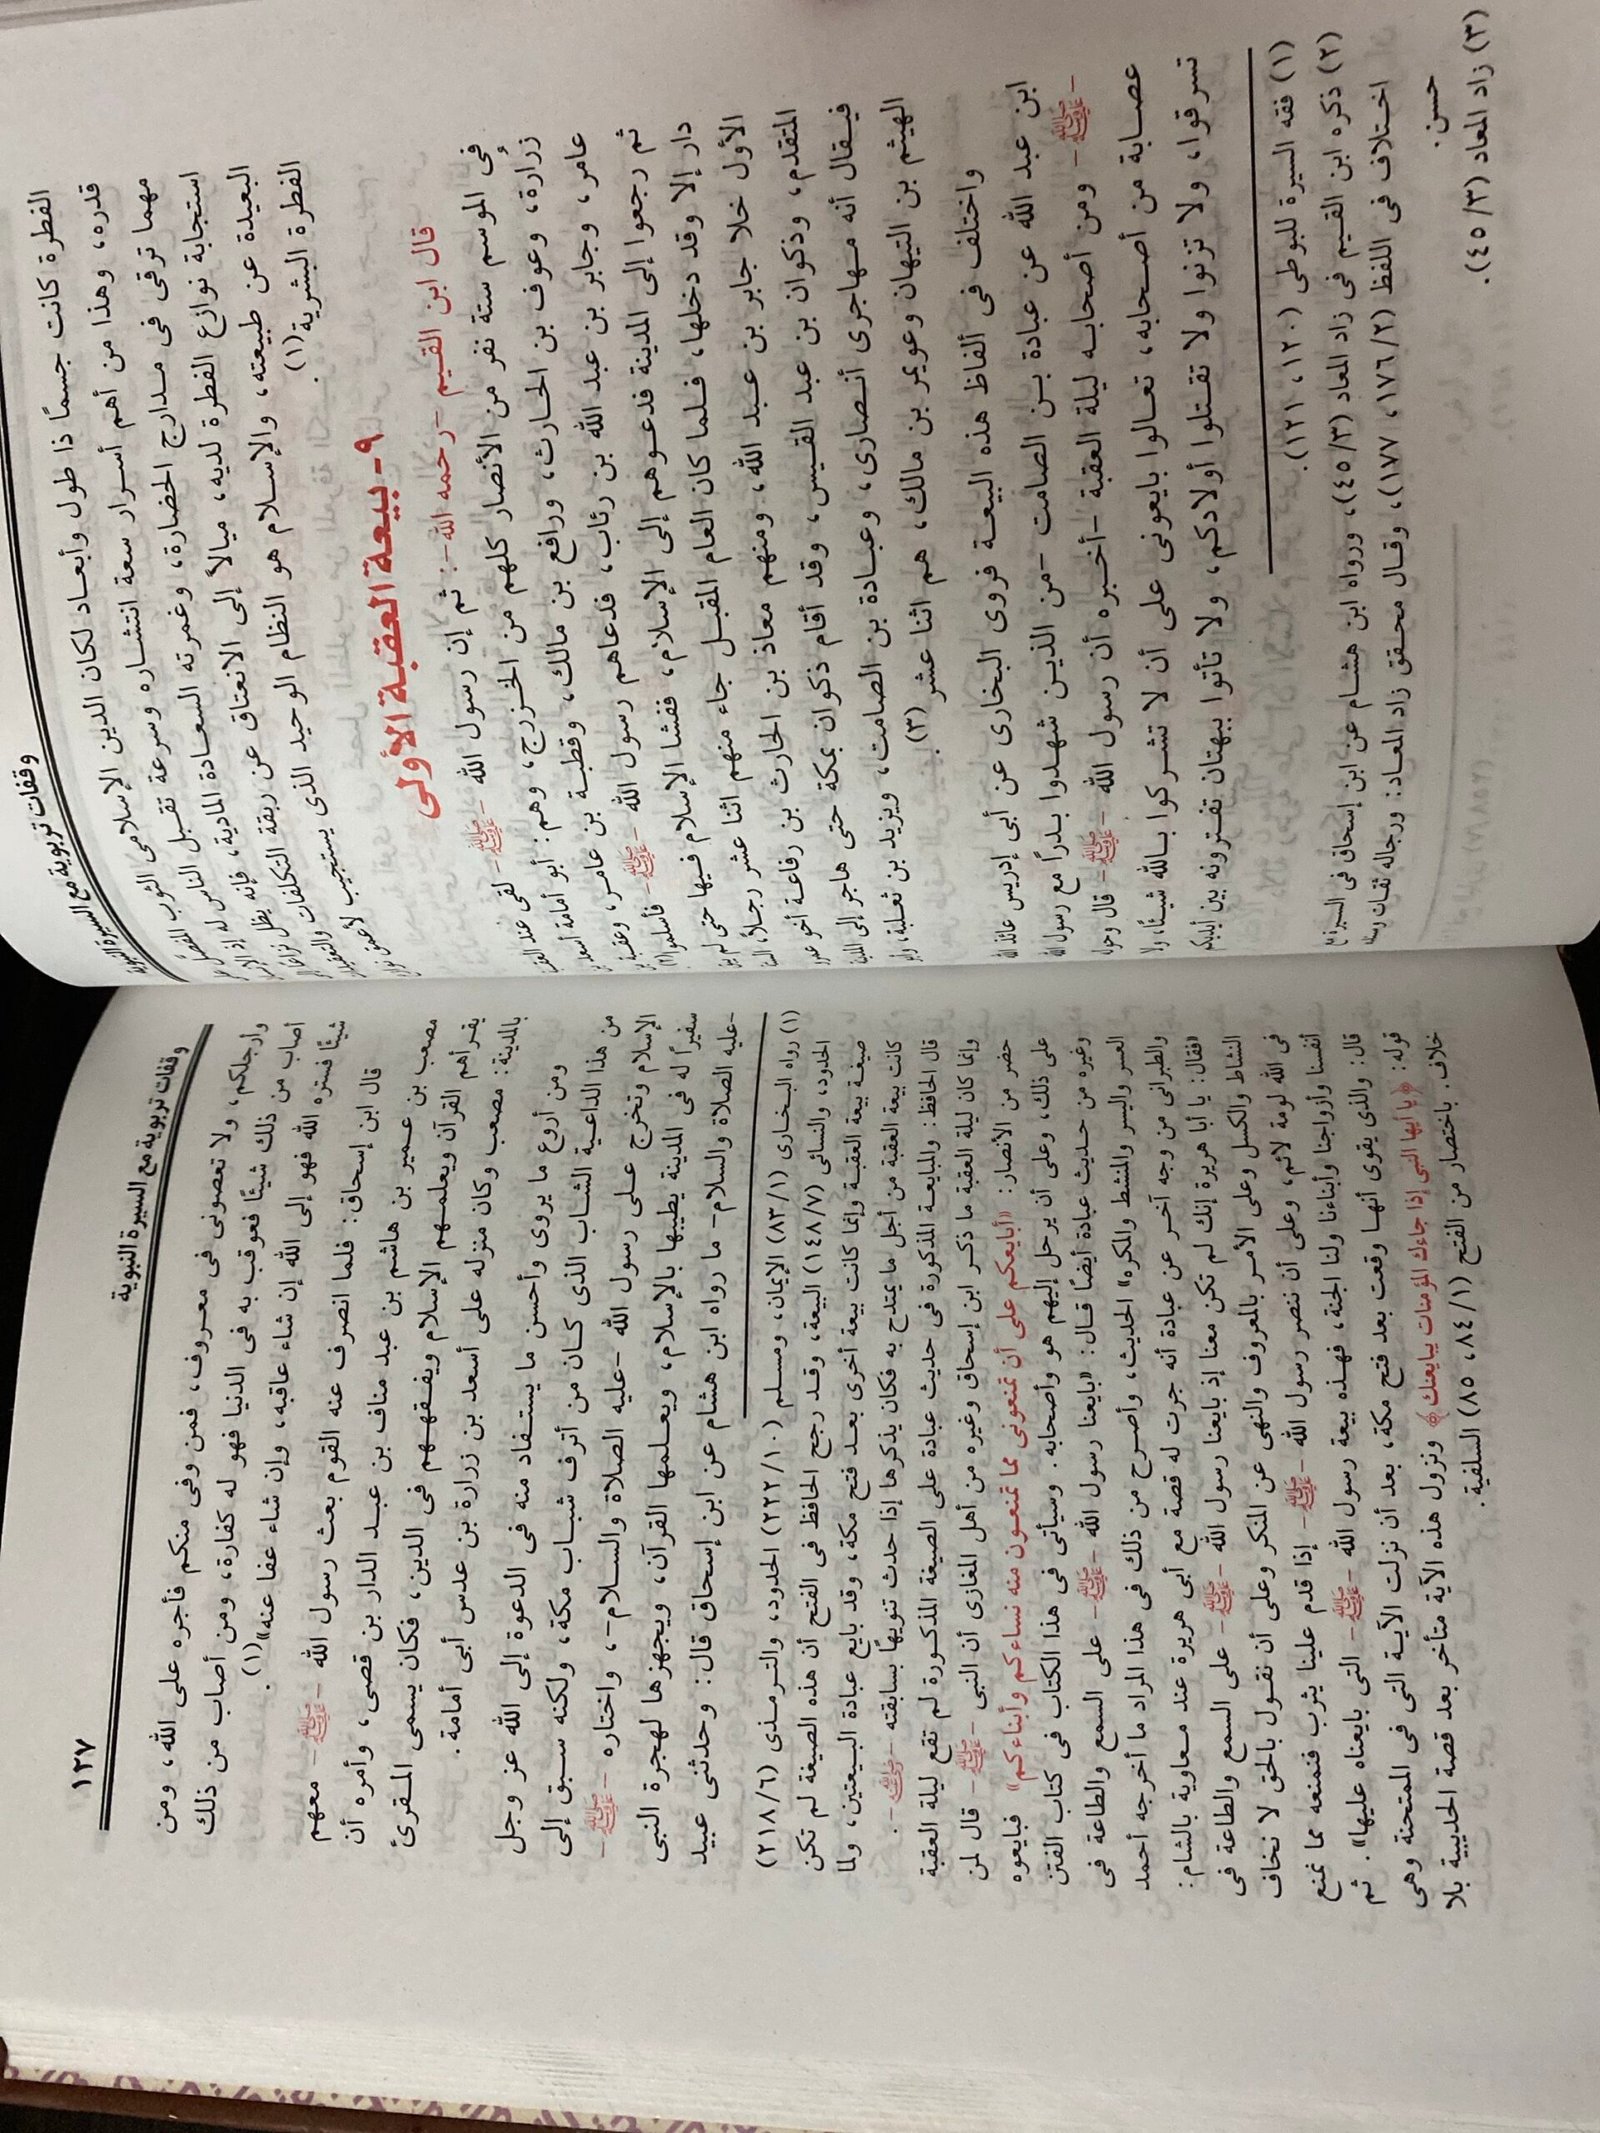 وقفات تربوية مع السيرة النبوية
الفطرة كانت جسمًا ذا طول وأبعاد لكان الدين الإسلامى الثوب المفصل
قدره، وهذا من أهم أسرار سعة انتشاره وسرعة تقبل الناس له إذ
مهما ترقى فى مدارج الحضارة، وغمرته السعادة المادية، فإنه يظل
استجابة نوازع الفطرة لديه، ميالاً إلى الانعتاق عن ربقة التكلفات والتعقيد
البعيدة عن طبيعته، والإسلام هو النظام الوحيد الذى يستجيب لأعمق
الفطرة البشرية(١).
٩- بيعة العقبة الأولى
قال ابن القيم -رحمه الله-: ثم إن رسول الله -ﷺ- لقى عند
فى الموسم ستة نفر من الأنصار كلهم من الخزرج، وهم: أبو أمامة أسعد
زُرارة، وعوف بن الحارث، ورافع بن مالك، وقطبة بن عامر، وعقبة
عامر، وجابر بن عبد الله بن رئاب، فدعاهم رسول الله -ﷺ- فأسلموا(٢)
ثم رجعوا إلى المدينة فدعوهم إلى الإسلام، ففشا الإسلام فيها حتى لم
دار إلا وقد دخلها، فلما كان العام المقبل جاء منهم اثنا عشر رجلاً،
الأول خلا جابر بن عبد الله، ومنهم معاذ بن الحارث بن رفاعة أخو
المتقدم، وذكوان بن عبد القيس، وقد أقام ذكوان بمكة حتى هاجر إلى
فيقال أنه مهاجرى أنصارى، وعبادة بن الصامت، ويزيد بن ثعلبة،
الهيثم بن التيهان وعويمر بن مالك، هم اثنا عشر(٣).
واختلف فى ألفاظ هذه البيعة فروى البخارى عن أبى إدريس عائذ الله
ابن عبد الله عن عبادة بن الصامت -من الذين شهدوا بدراً مع رسول الله
-ﷺ- ومن أصحابه ليلة العقبة -أخبره أن رسول الله -ﷺ- قال وحوله
عصابة من أصحابه، تعالوا بايعونى على أن لا تشركوا بالله شيئًا، ولا
تسرقوا، ولا تزنوا ولا تقتلوا أولادكم، ولا تأتوا ببهتان تفترونه بين أيديكم
(١) فقه السيرة للبوطى (١٢٠، ١٢١).
(٢) ذكره ابن القيم فى زاد المعاد (٣/ ٤٥)، ورواه ابن هشام عن ابن إسحاق فى السيرة
اختلاف فى اللفظ (٢/ ١٧٦، ١٧٧)، وقال محقق زاد المعاد: ورجاله ثقات وسنده
حسن.
(٣) زاد المعاد (٣/ ٤٥).
وقفات تربوية مع السيرة النبوية
١٢٧
وأرجلكم، ولا تعصونى فى معروف، فمن وفى منكم فأجره على الله، ومن
أصاب من ذلك شيئًا فعوقب به فى الدنيا فهو له كفارة، ومن أصاب من ذلك
شيئًا فستره الله فهو إلى الله إن شاء عاقبه، وإن شاء عفا عنه»(١).
قال ابن إسحاق: فلما انصرف عنه القوم بعث رسول الله -ﷺ- معهم
مصعب بن عمير بن هاشم بن عبد مناف بن عبد الدار بن قصى، وأمره أن
يقرأهم القرآن ويعلمهم الإسلام ويفقههم فى الدين، فكان يسمى المقرئ
بالمدينة: مصعب وكان منزله على أسعد بن زرارة بن عدس أبى أمامة.
ومن أروع ما يروى وأحسن ما يستفاد منه فى الدعوة إلى الله عز وجل
من هذا الداعية الشاب الذى كان من أترف شباب مكة، ولكنه سبق إلى
الإسلام وتخرج على رسول الله -عليه الصلاة والسلام-، واختاره -ﷺ-
سفيراً له فى المدينة يطيبها بالإسلام، ويعلمها القرآن، ويجهزها لهجرة النبى
-عليه الصلاة والسلام- ما رواه ابن هشام عن ابن إسحاق قال: وحدثنى عبيد
(١) رواه البخارى (١/ ٨٣) الإيمان، ومسلم (١٠/ ٢٢٢) الحدود، والترمذى (٦/ ٢١٨)
الحدود، والنسائى (٧/ ١٤٨) البيعة، وقد رجح الحافظ فى الفتح أن هذه الصيغة لم تكن
صيغة بيعة العقبة وإنما كانت بيعة أخرى بعد فتح مكة، وقد بايع عبادة البيعتين، ولما
كانت بيعة العقبة من أجل ما يمتدح به فكان يذكرها إذا حدث تنويهًا بسابقته -رضي الله عنه-.
قال الحافظ: والمبايعة المذكورة فى حديث عبادة على الصيغة المذكورة لم تقع ليلة العقبة
وإنما كان ليلة العقبة ما ذكر ابن إسحاق وغيره من أهل المغازى أن النبى -ﷺ- قال لمن
حضر من الأنصار: «أبايعكم على أن تمنعونى مما تمنعون منه نساءكم وأبناءكم» فبايعوه
على ذلك، وعلى أن يرحل إليهم هو وأصحابه. وسيأتى فى هذا الكتاب فى كتاب الفتن
وغيره من حديث عبادة أيضًا قال: «بايعنا رسول الله -ﷺ- على السمع والطاعة فى
العسر واليسر والمنشط والمكره» الحديث، وأصرح من ذلك فى هذا المراد ما أخرجه أحمد
والطبرانى من وجه آخر عن عبادة أنه جرت له قصة مع أبى هريرة عند معاوية بالشام:
«فقال: يا أبا هريرة إنك لم تكن معنا إذ بايعنا رسول الله -ﷺ- على السمع والطاعة فى
النشاط والكسل وعلى الأمر بالمعروف والنهى عن المنكر وعلى أن نقول بالحق لا نخاف
فى الله لومة لائم، وعلى أن ننصر رسول الله -ﷺ- إذا قدم علينا يثرب فنمنعه مما نمنع
أنفسنا وأزواجنا وأبناءنا ولنا الجنة، فهذه بيعة رسول الله -ﷺ- التى بايعناه عليها». ثم
قال: والذى يقوى أنها وقعت بعد فتح مكة، بعد أن نزلت الآية التى فى الممتحنة وهى
قوله: ﴿يا أيها النبى إذا جاءك المؤمنات يبايعنك﴾ ونزول هذه الآية متأخر بعد قصة الحديبية بلا
خلاف. باختصار من الفتح (١/ ٨٤، ٨٥) السلفية.